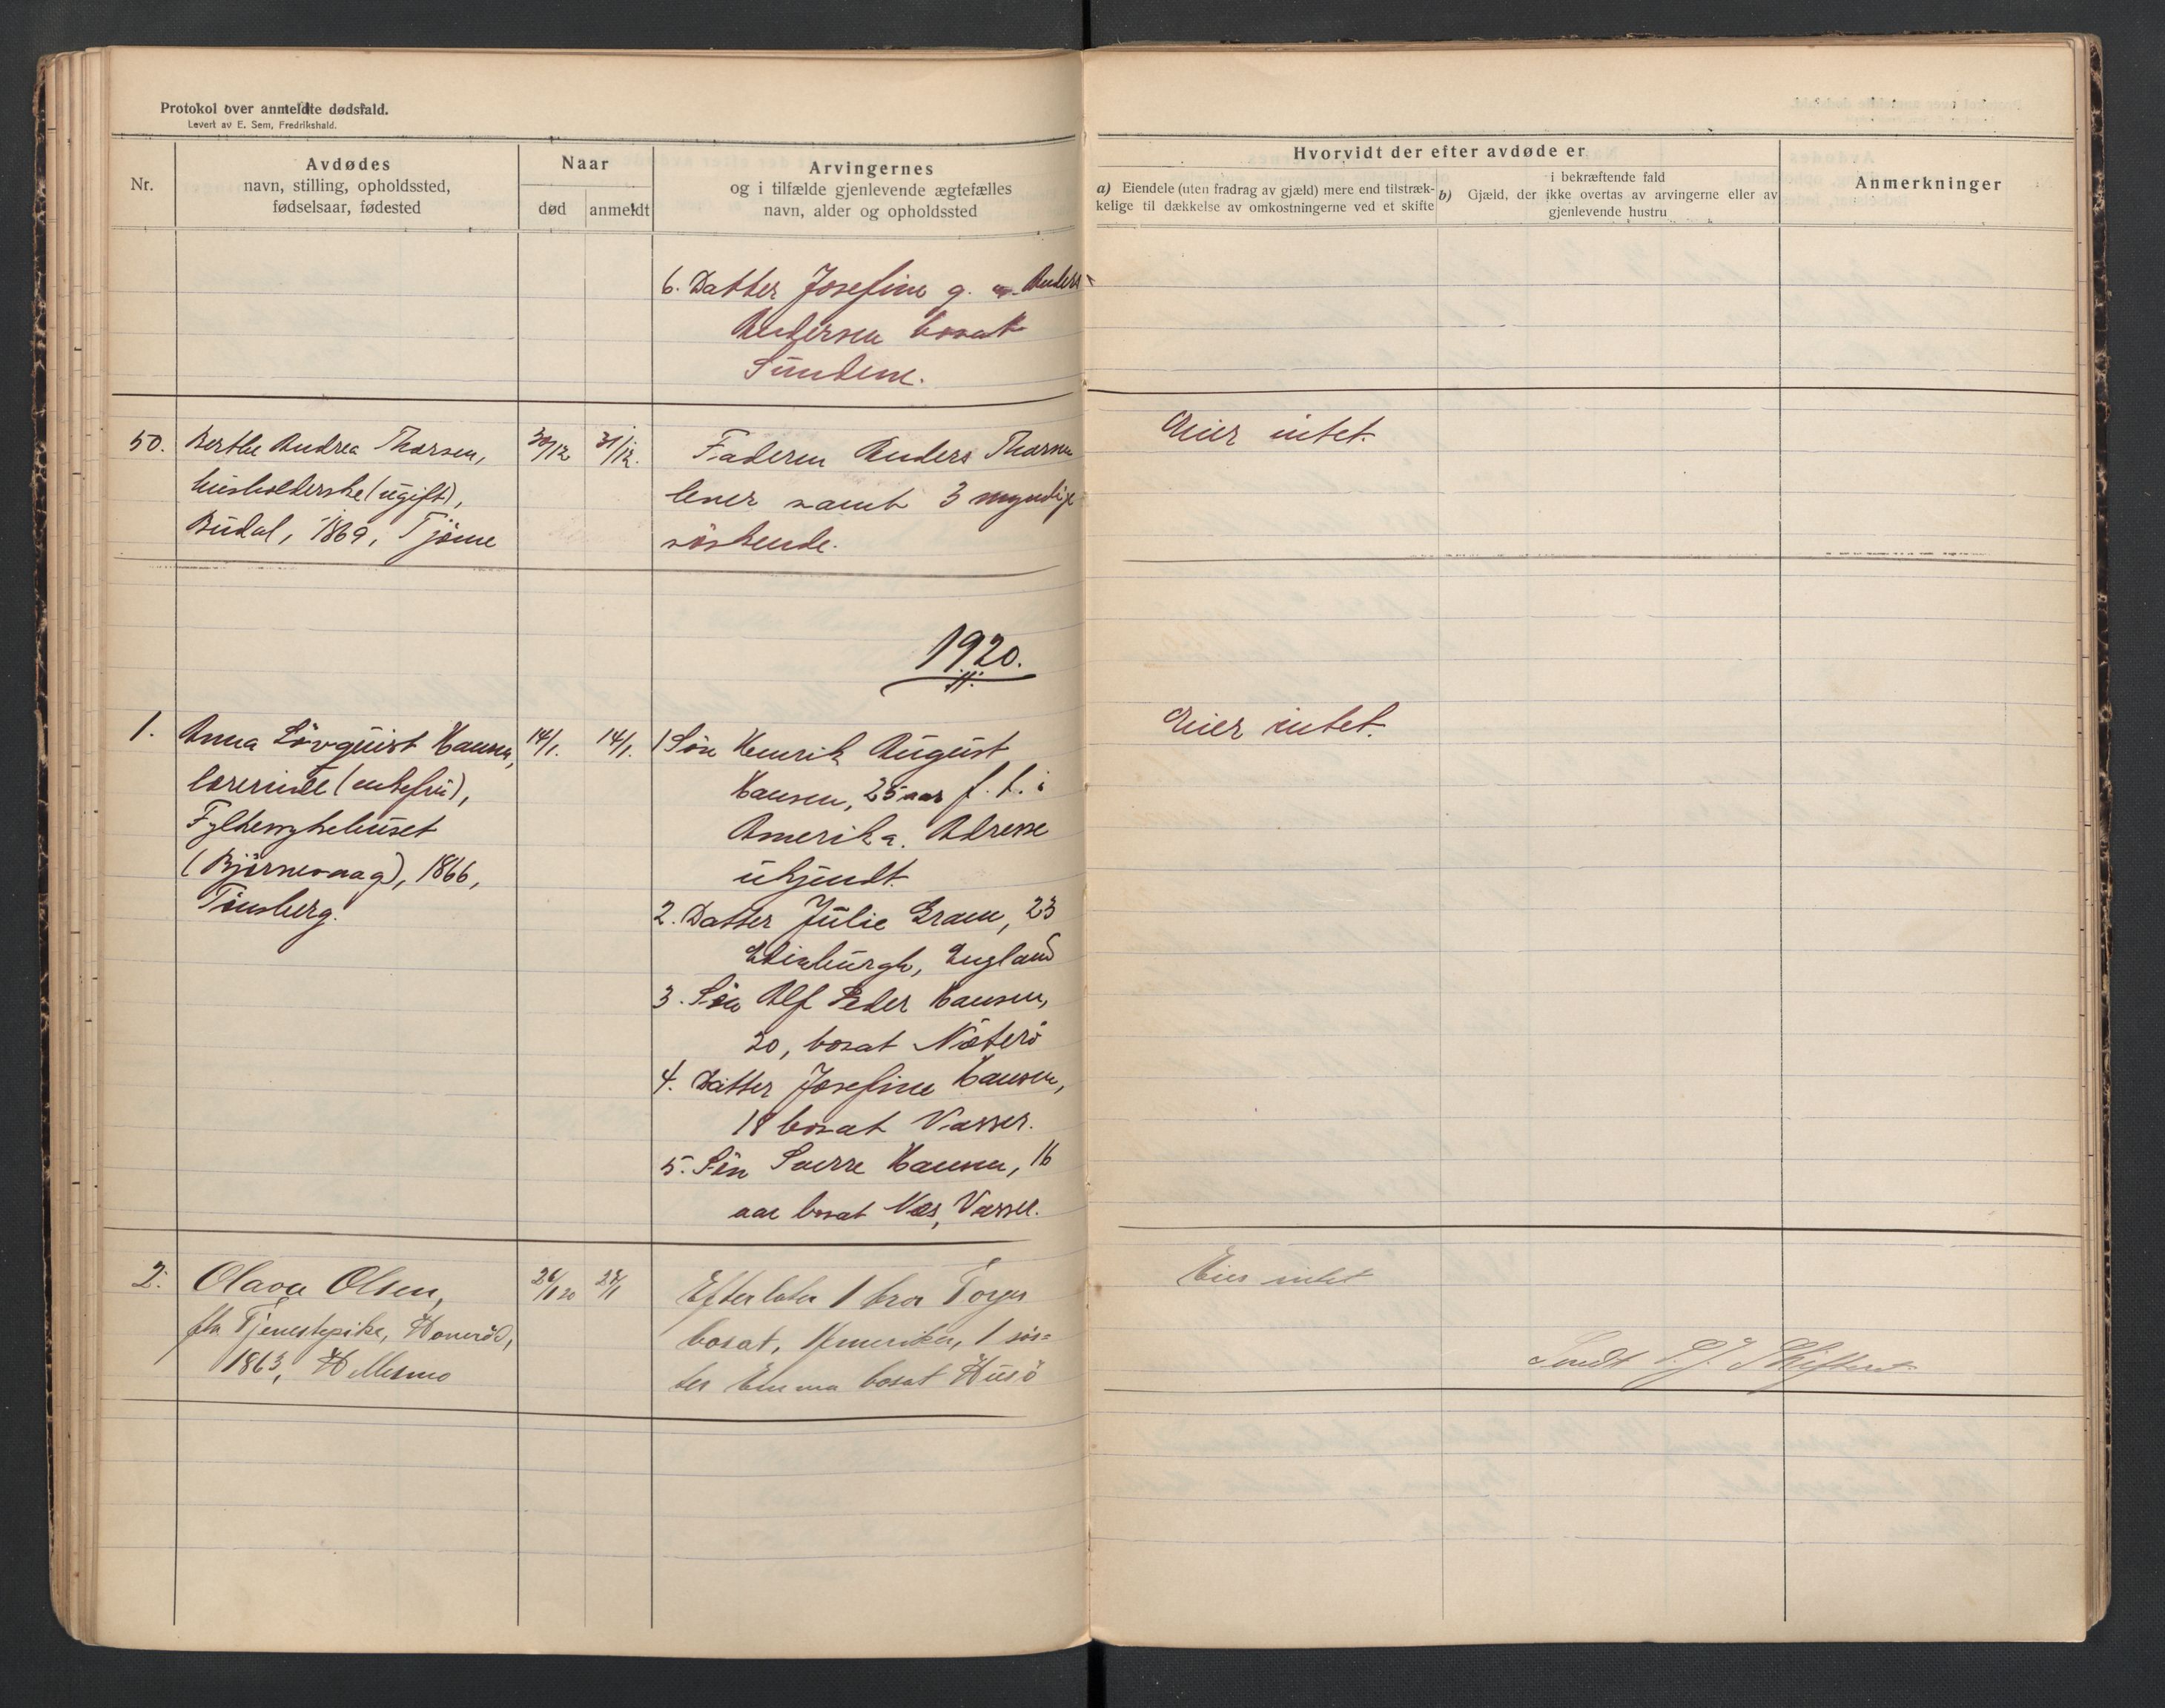 Protokol over anmeldte dødsfald.
Levert av E. Sem, Fredrikshald.
Nr.
Avdødes
navn, stilling, opholdssted,
fødselsaar, fødested
Naar
død
anmeldt
Arvingernes
og i tilfælde gjenlevende ægtefælles
navn, alder og opholdssted
Hvorvidt der efter avdøde er
a) Eiendele (uten fradrag av gjæld) mere end tilstræk-
kelige til dækkelse av omkostningerne ved et skifte
i bekræftende fald
b) Gjæld, der ikke overtas av arvingerne eller av
gjenlevende hustru
Anmerkninger
6. Datter Josefine g. m. Anders
Andersen bosat
Sundene.
50.
Berthe Andrea Thorsen,
husholderske (ugift),
Budal, 1869, Tjøme
30/12
31/12.
Faderen Anders Thorsen
lever samt 3 myndige
søskende.
Eier intet.
1920.
1.
Anna Lövquist Hansen,
lærerinde (enkefru),
Fylkessykehuset
(Bjørnevaag), 1866,
Tønsberg.
14/1.
14/1.
1 Søn Henrik August
Hansen, 25 aar f. t. i
Amerika. Adresse
ukjendt.
2. Datter Julie Gram, 23
Edinburgh, England
3. Søn Alf Peder Hansen,
20, bosat Nøterö
4. Datter Josefine Hansen,
18 bosat Vasser.
5. Søn Sverre Hansen, 16
aar bosat Næs, Vasser.
Eier intet.
2.
Olava Olsen,
fhv Tjenestepike, Honerød,
1863, Hellesmo
26/1 20
28/1
Efterlater 1 bror Torger
bosat, Amerika, 1 søs=
ter Emma bosat Husö
Eier intet
Sendt S. J. Skifteret